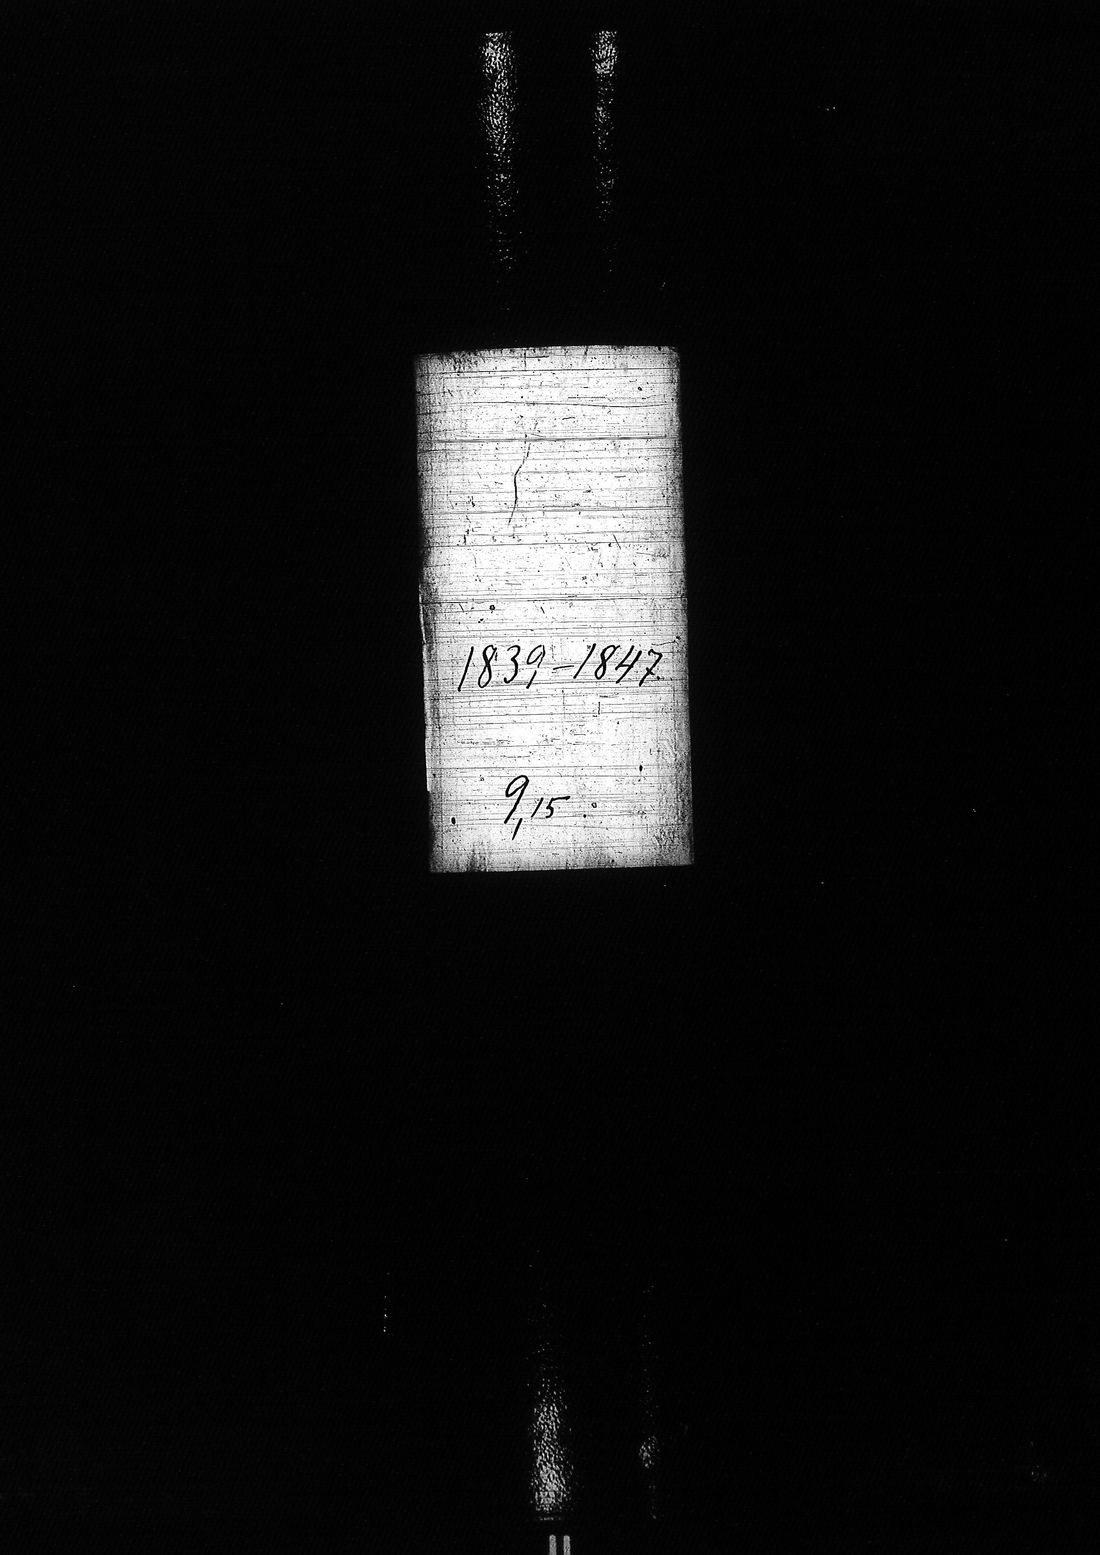 1839-1847.
9,15